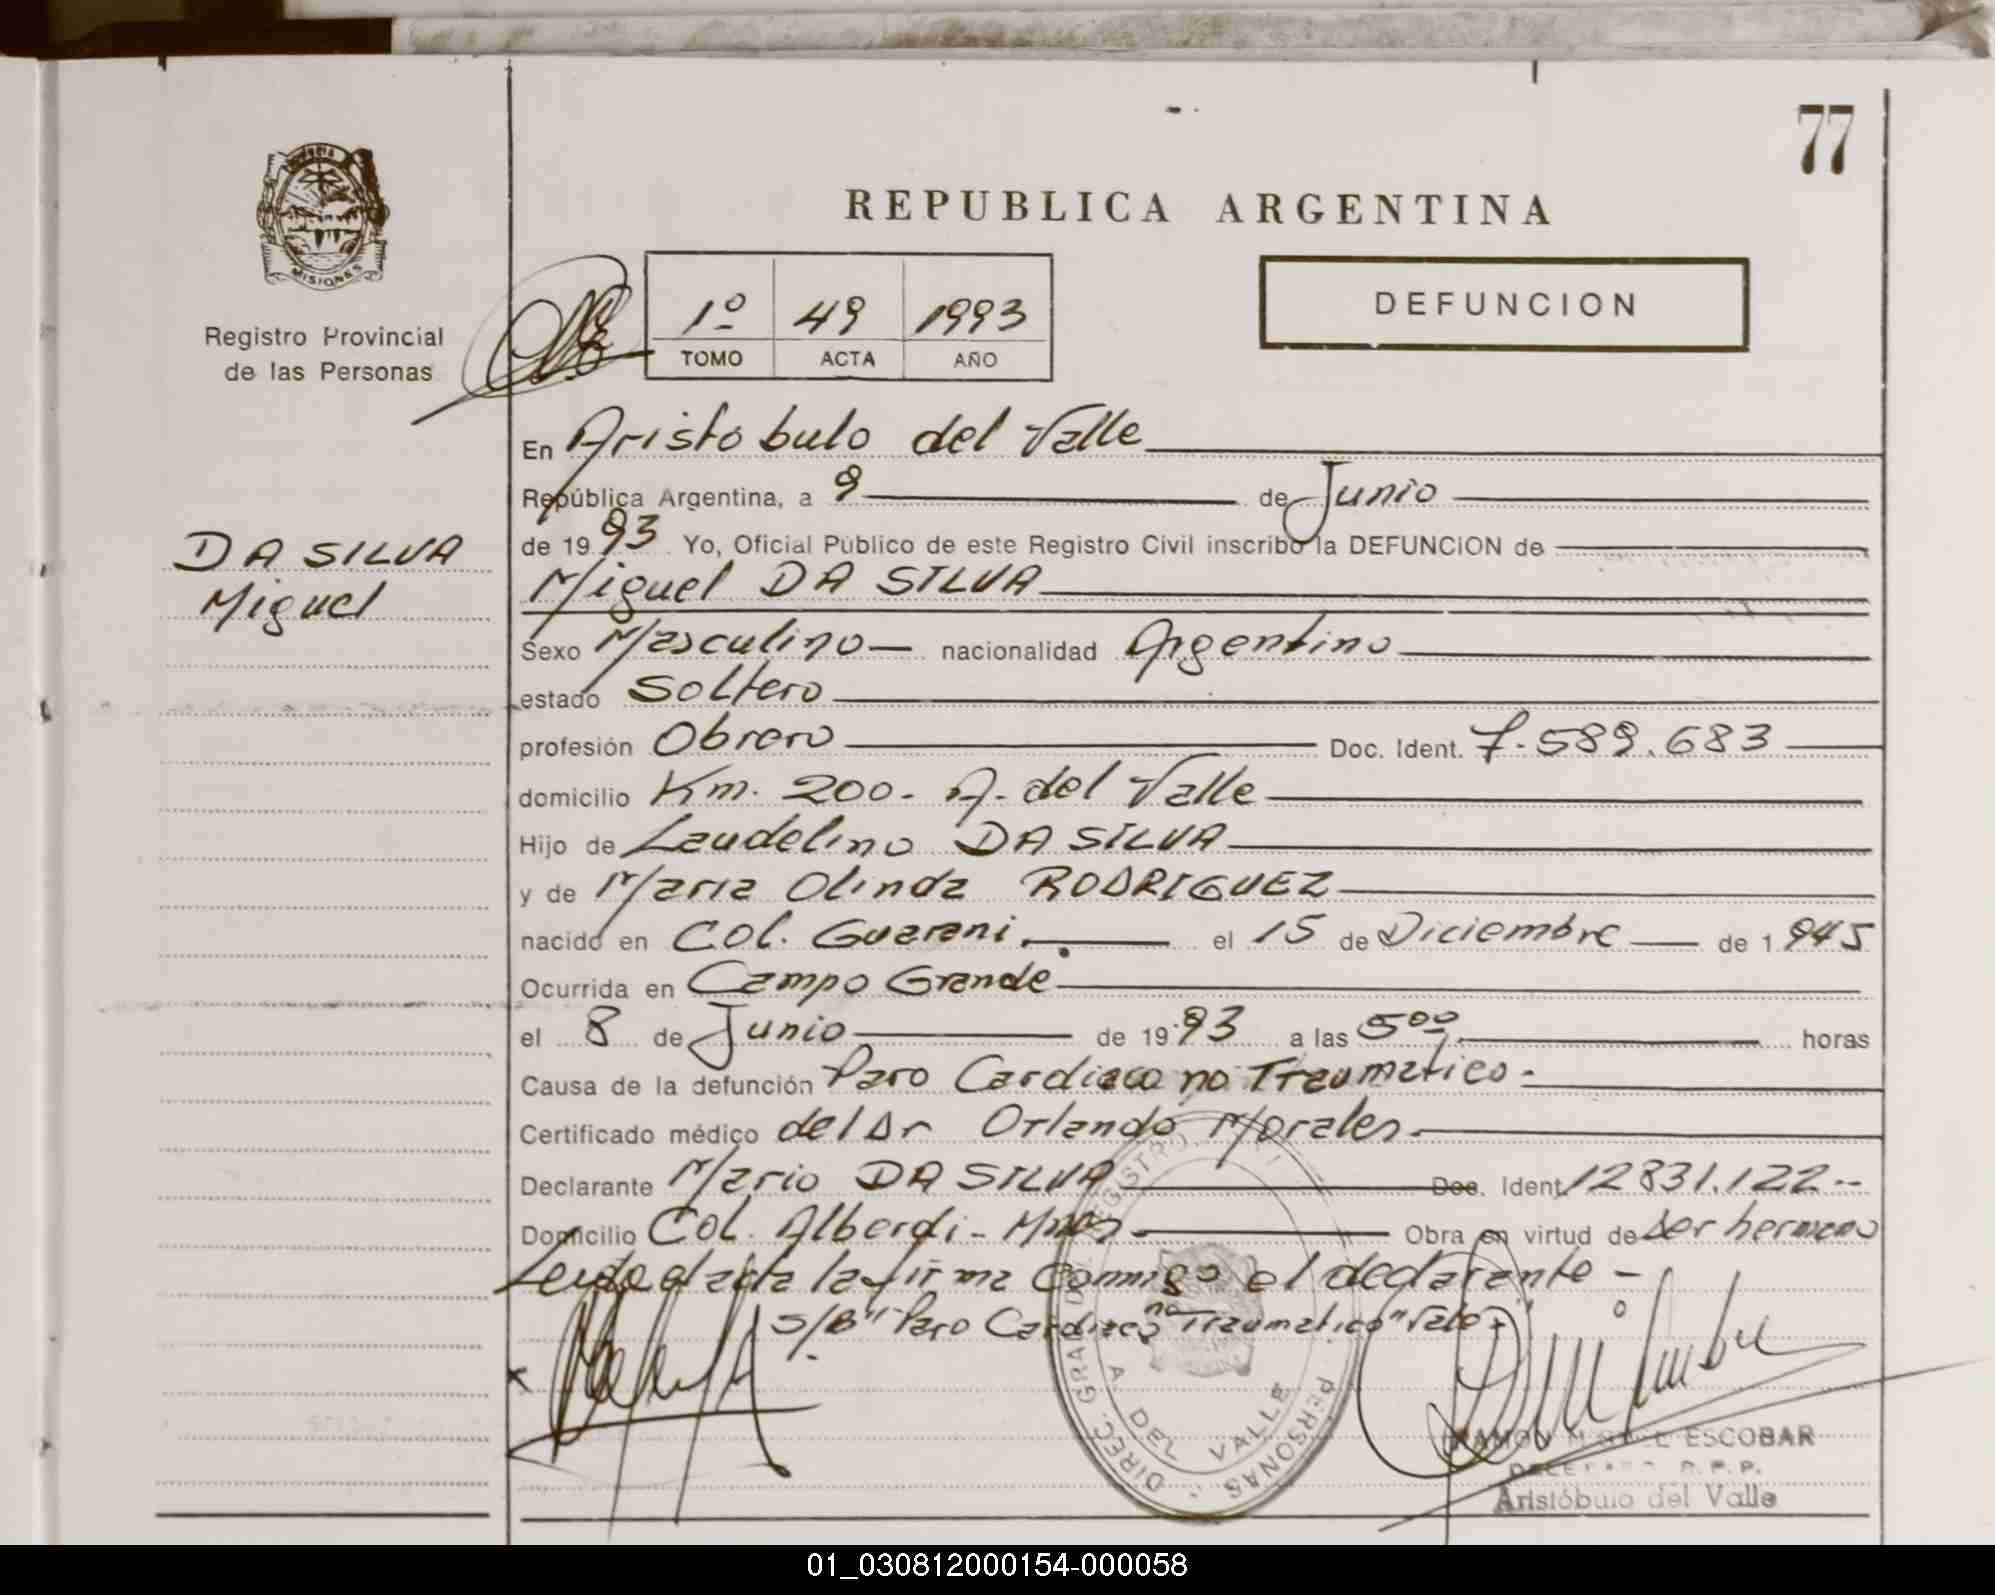 77
MISIONES
REPUBLICA ARGENTINA
Registro Provincial
de las Personas
1º 49 1993
TOMO ACTA AÑO
DEFUNCION
DA SILVA
Miguel
En Aristobulo del Valle
República Argentina, a 9 de Junio
de 1993 Yo, Oficial Público de este Registro Civil inscribo la DEFUNCION de
Miguel DA SILVA
Sexo Masculino nacionalidad Argentino
estado Soltero
profesión Obrero Doc. Ident. 7.589.683
domicilio Km. 200. A. del Valle
Hijo de Laudelino DA SILVA
y de Maria Olinda RODRIGUEZ
nacido en Col. Guarani. el 15 de Diciembre de 1.945
Ocurrida en Campo Grande
el 8 de Junio de 1993 a las 5 00 horas
Causa de la defunción Paro Cardiaco no Traumatico.
Certificado médico del Dr Orlando Morales.
Declarante Mario DA SILVA Doc. Ident. 12831.122
Domicilio Col. Alberdi - Mnes Obra en virtud de ser hermano
Leida el acta la firma conmigo el declarante -
S/B "Paro Cardiaco no Traumatico" Vale -
DIREC. GRAL. DEL REGISTRO PERSONAS
A DEL VALLE
RAMON MIGUEL ESCOBAR
DELEGADO R.P.P.
Aristóbulo del Valle
01_030812000154-000058